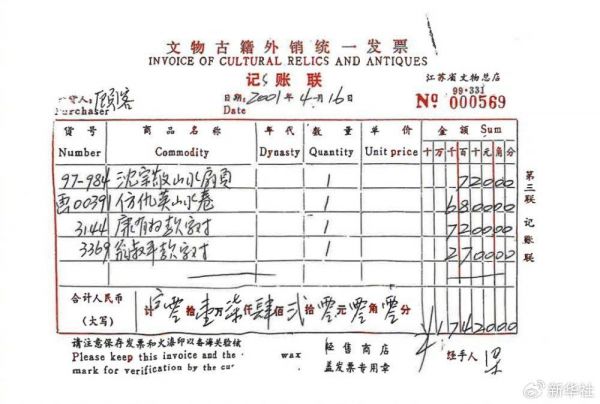 文物古籍外销统一发票
INVOICE OF CULTURAL RELICS AND ANTIQUES
记 账 联
江苏省文物总店
99·331
货人: 顾客
Purchaser
日期: 2001年4月16日
Date
№ 000569
货号 商品名称 年代 数量 单价 金额 Sum
Number Commodity Dynasty Quantity Unit price 十万千百十元角分
97-984 沈宗敬山水扇页 1 72000
00391 仿仇英山水卷 1 680000
3144 康有为款字对 1 720000
3369 翁叔平款字对 1 270000
第三联 记账联
合计人民币
(大写)
计 零拾壹万柒仟肆佰贰拾零元零角零分
¥1742000
请注意保存发票和火漆印以备海关验核
Please keep this invoice and the wax
mark for verification by the cus
经售商店
盖发票专用章
经手人
新华社